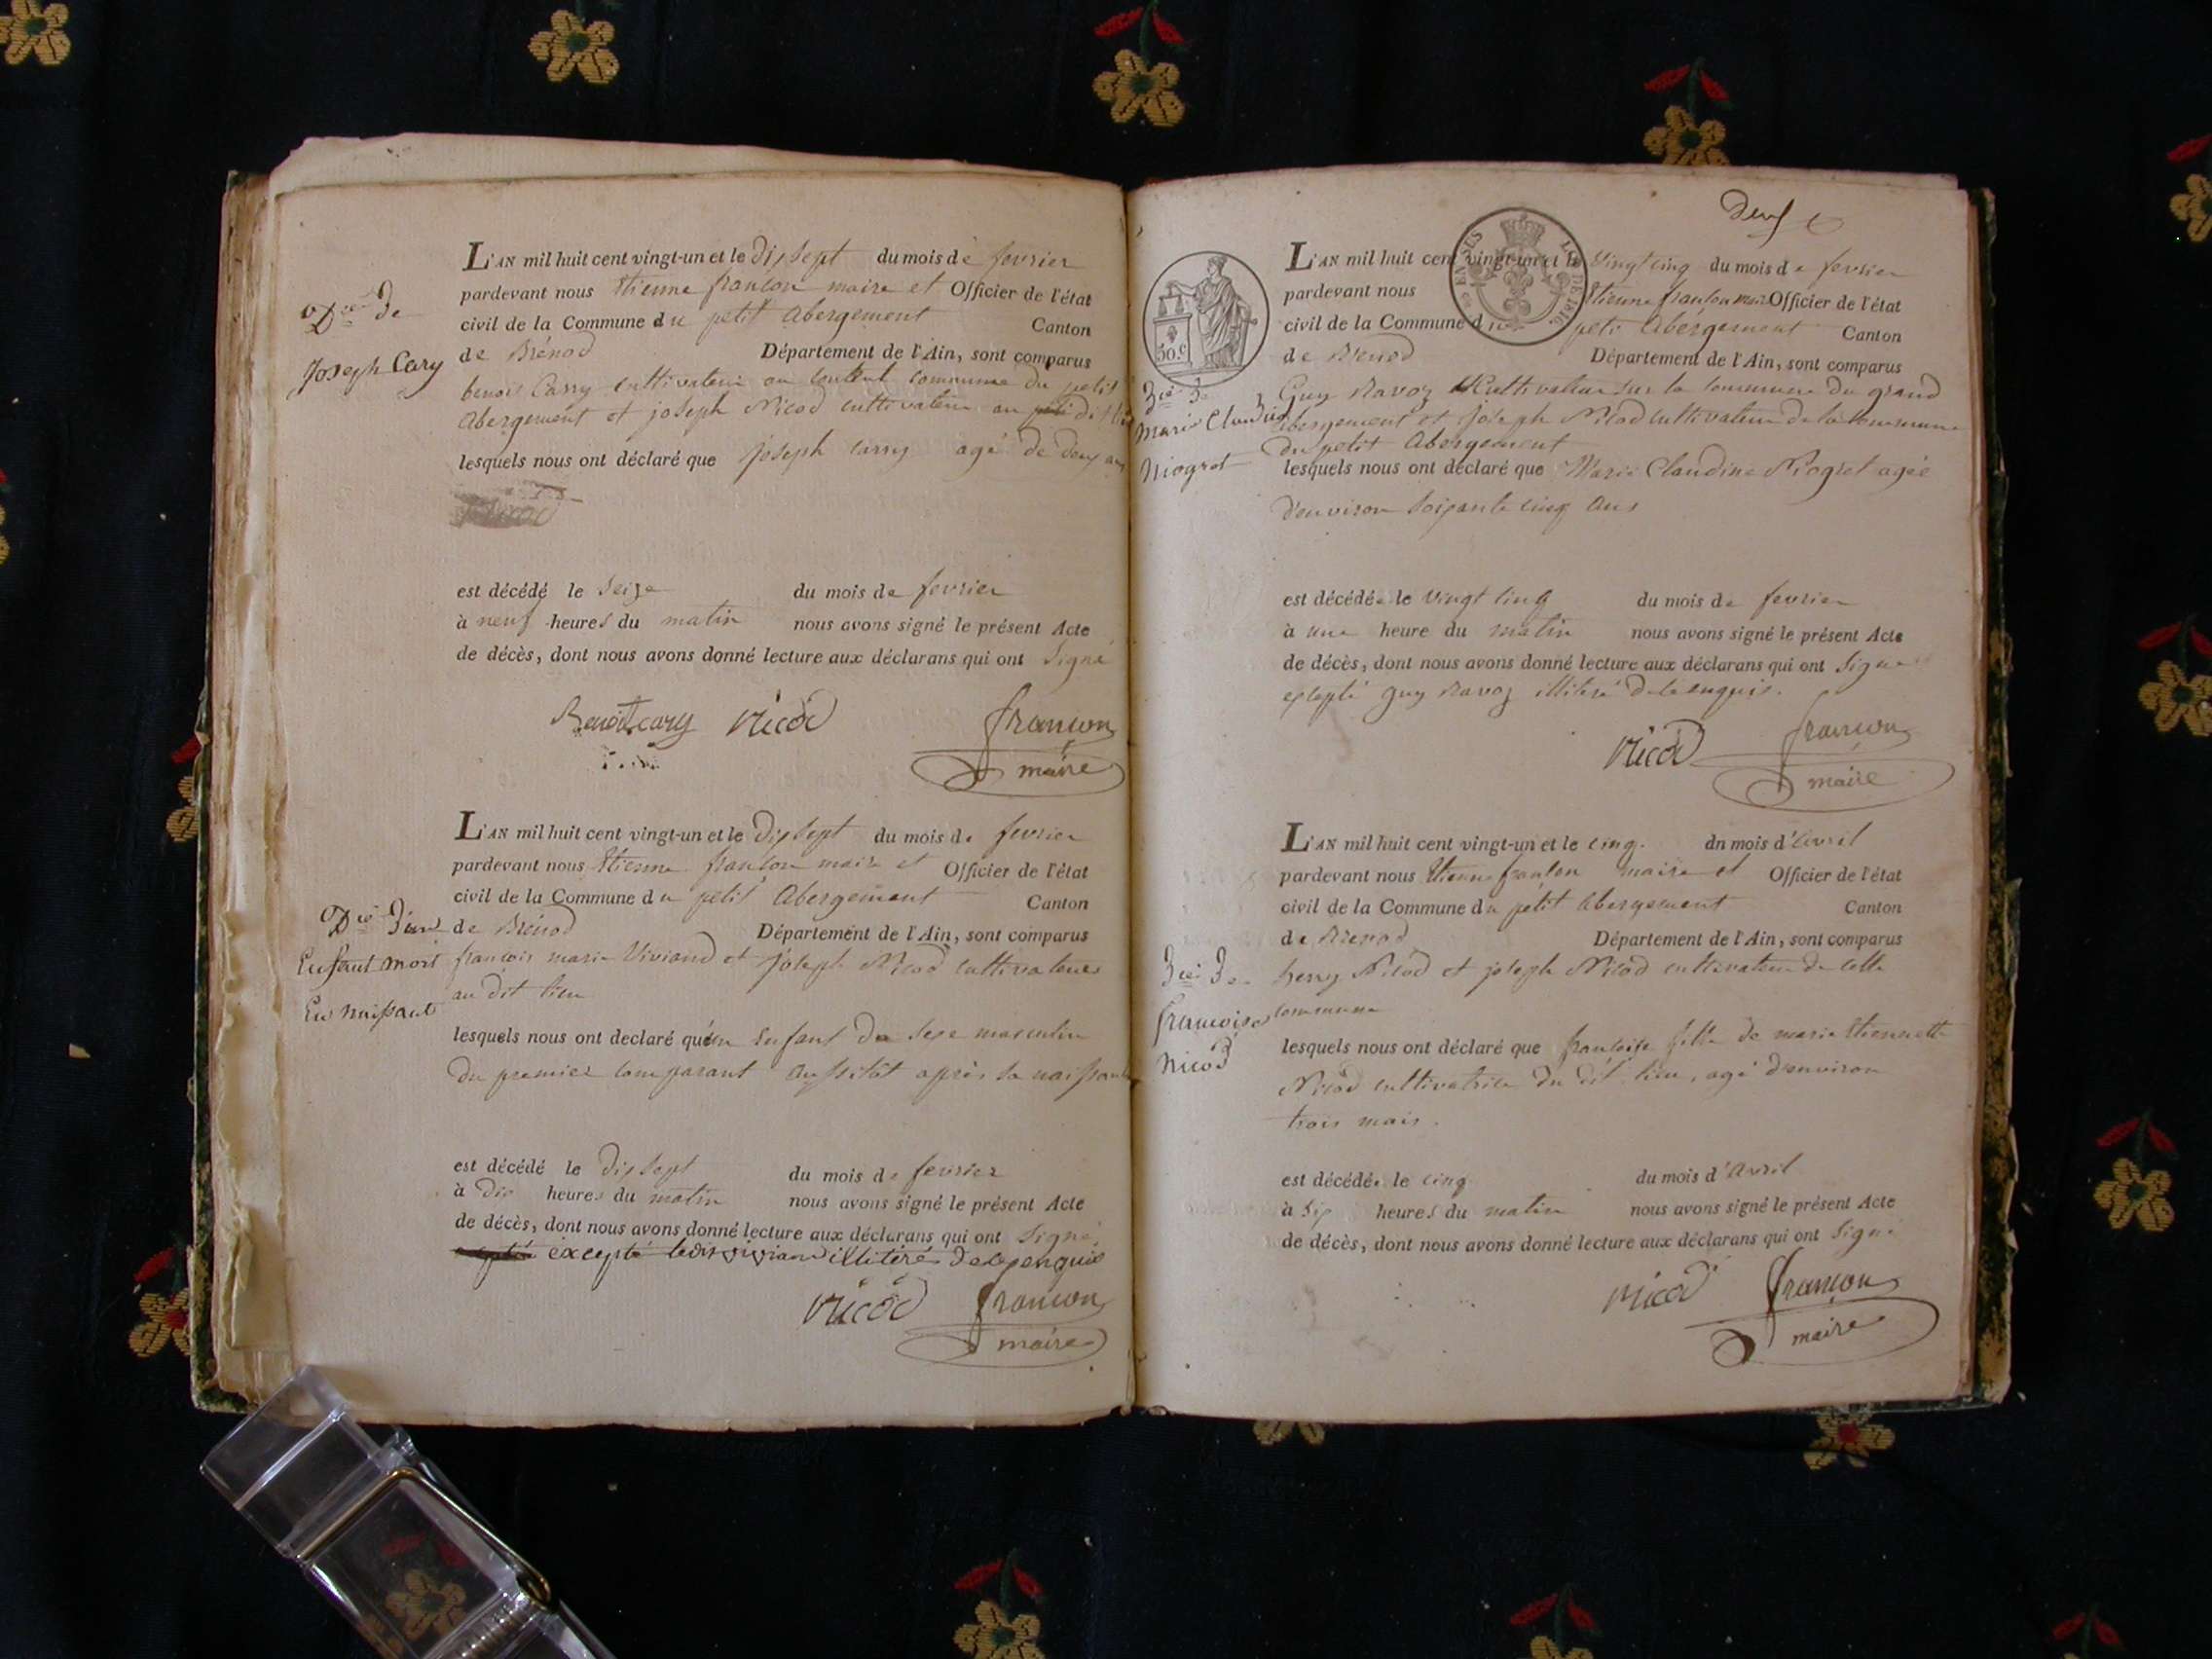 Dcè de
Joseph Cary
L'AN mil huit cent vingt-un et le dixsept du mois de fevrier
pardevant nous Etienne françon maire et Officier de l'état
civil de la Commune du petit abergement Canton
de Brénod Département de l'Ain, sont comparus
benoit Carry cultivateur commune du petit
abergement et joseph Nicod cultivateur au dit lieu
lesquels nous ont déclaré que joseph carry agé de deux ans
est décédé le seize du mois de fevrier
à neuf heures du matin nous avons signé le présent Acte
de décès, dont nous avons donné lecture aux déclarans qui ont signé
Benoit cary Nicod françon
maire
Dcè d'un
Enfant mort
En naissant
L'AN mil huit cent vingt-un et le dixsept du mois de fevrier
pardevant nous Etienne françon maire et Officier de l'état
civil de la Commune du petit abergement Canton
de Brénod Département de l'Ain, sont comparus
françois marie Viviand et joseph Nicod cultivateurs
au dit lieu
lesquels nous ont declaré qu'un enfant du sexe masculin
du premier comparant aussitôt après sa naissance
est décédé le dixsept du mois de fevrier
à dix heures du matin nous avons signé le présent Acte
de décès, dont nous avons donné lecture aux déclarans qui ont signé
excepté ledit viviand illitéré de ce enquis
Nicod françon
maire
deux
30.c
LOI DE 1816.
Dcè de
Marie Claudine
Niogret
L'AN mil huit cent vingt-un et le vingt cinq du mois de fevrier
pardevant nous Etienne françon maire Officier de l'état
civil de la Commune du petit abergement Canton
de Brenod Département de l'Ain, sont comparus
Guy Ravoz cultivateur sur la commune du grand
abergement et joseph Nicod cultivateur de la commune
du petit abergement
lesquels nous ont déclaré que Marie Claudine Niogret agée
d'environ soixante cinq ans
est décédée le vingt cinq du mois de fevrier
à une heure du matin nous avons signé le présent Acte
de décès, dont nous avons donné lecture aux déclarans qui ont signé
excepté guy Ravoz illiteré de ce enquis.
Nicod françon
maire
Dcè de
françoise
Nicod
L'AN mil huit cent vingt-un et le cinq. dn mois d'avril
pardevant nous Etienne françon maire et Officier de l'état
civil de la Commune du petit abergement Canton
de Brenod Département de l'Ain, sont comparus
henry Nicod et joseph Nicod cultivateur de cette
commune
lesquels nous ont déclaré que françoise fille de marie Etiennette
Nicod cultivatrice du dit lieu, agé d'environ
trois mois.
est décédée le cinq du mois d'avril
à six heures du matin nous avons signé le présent Acte
de décès, dont nous avons donné lecture aux déclarans qui ont signé
Nicod françon
maire